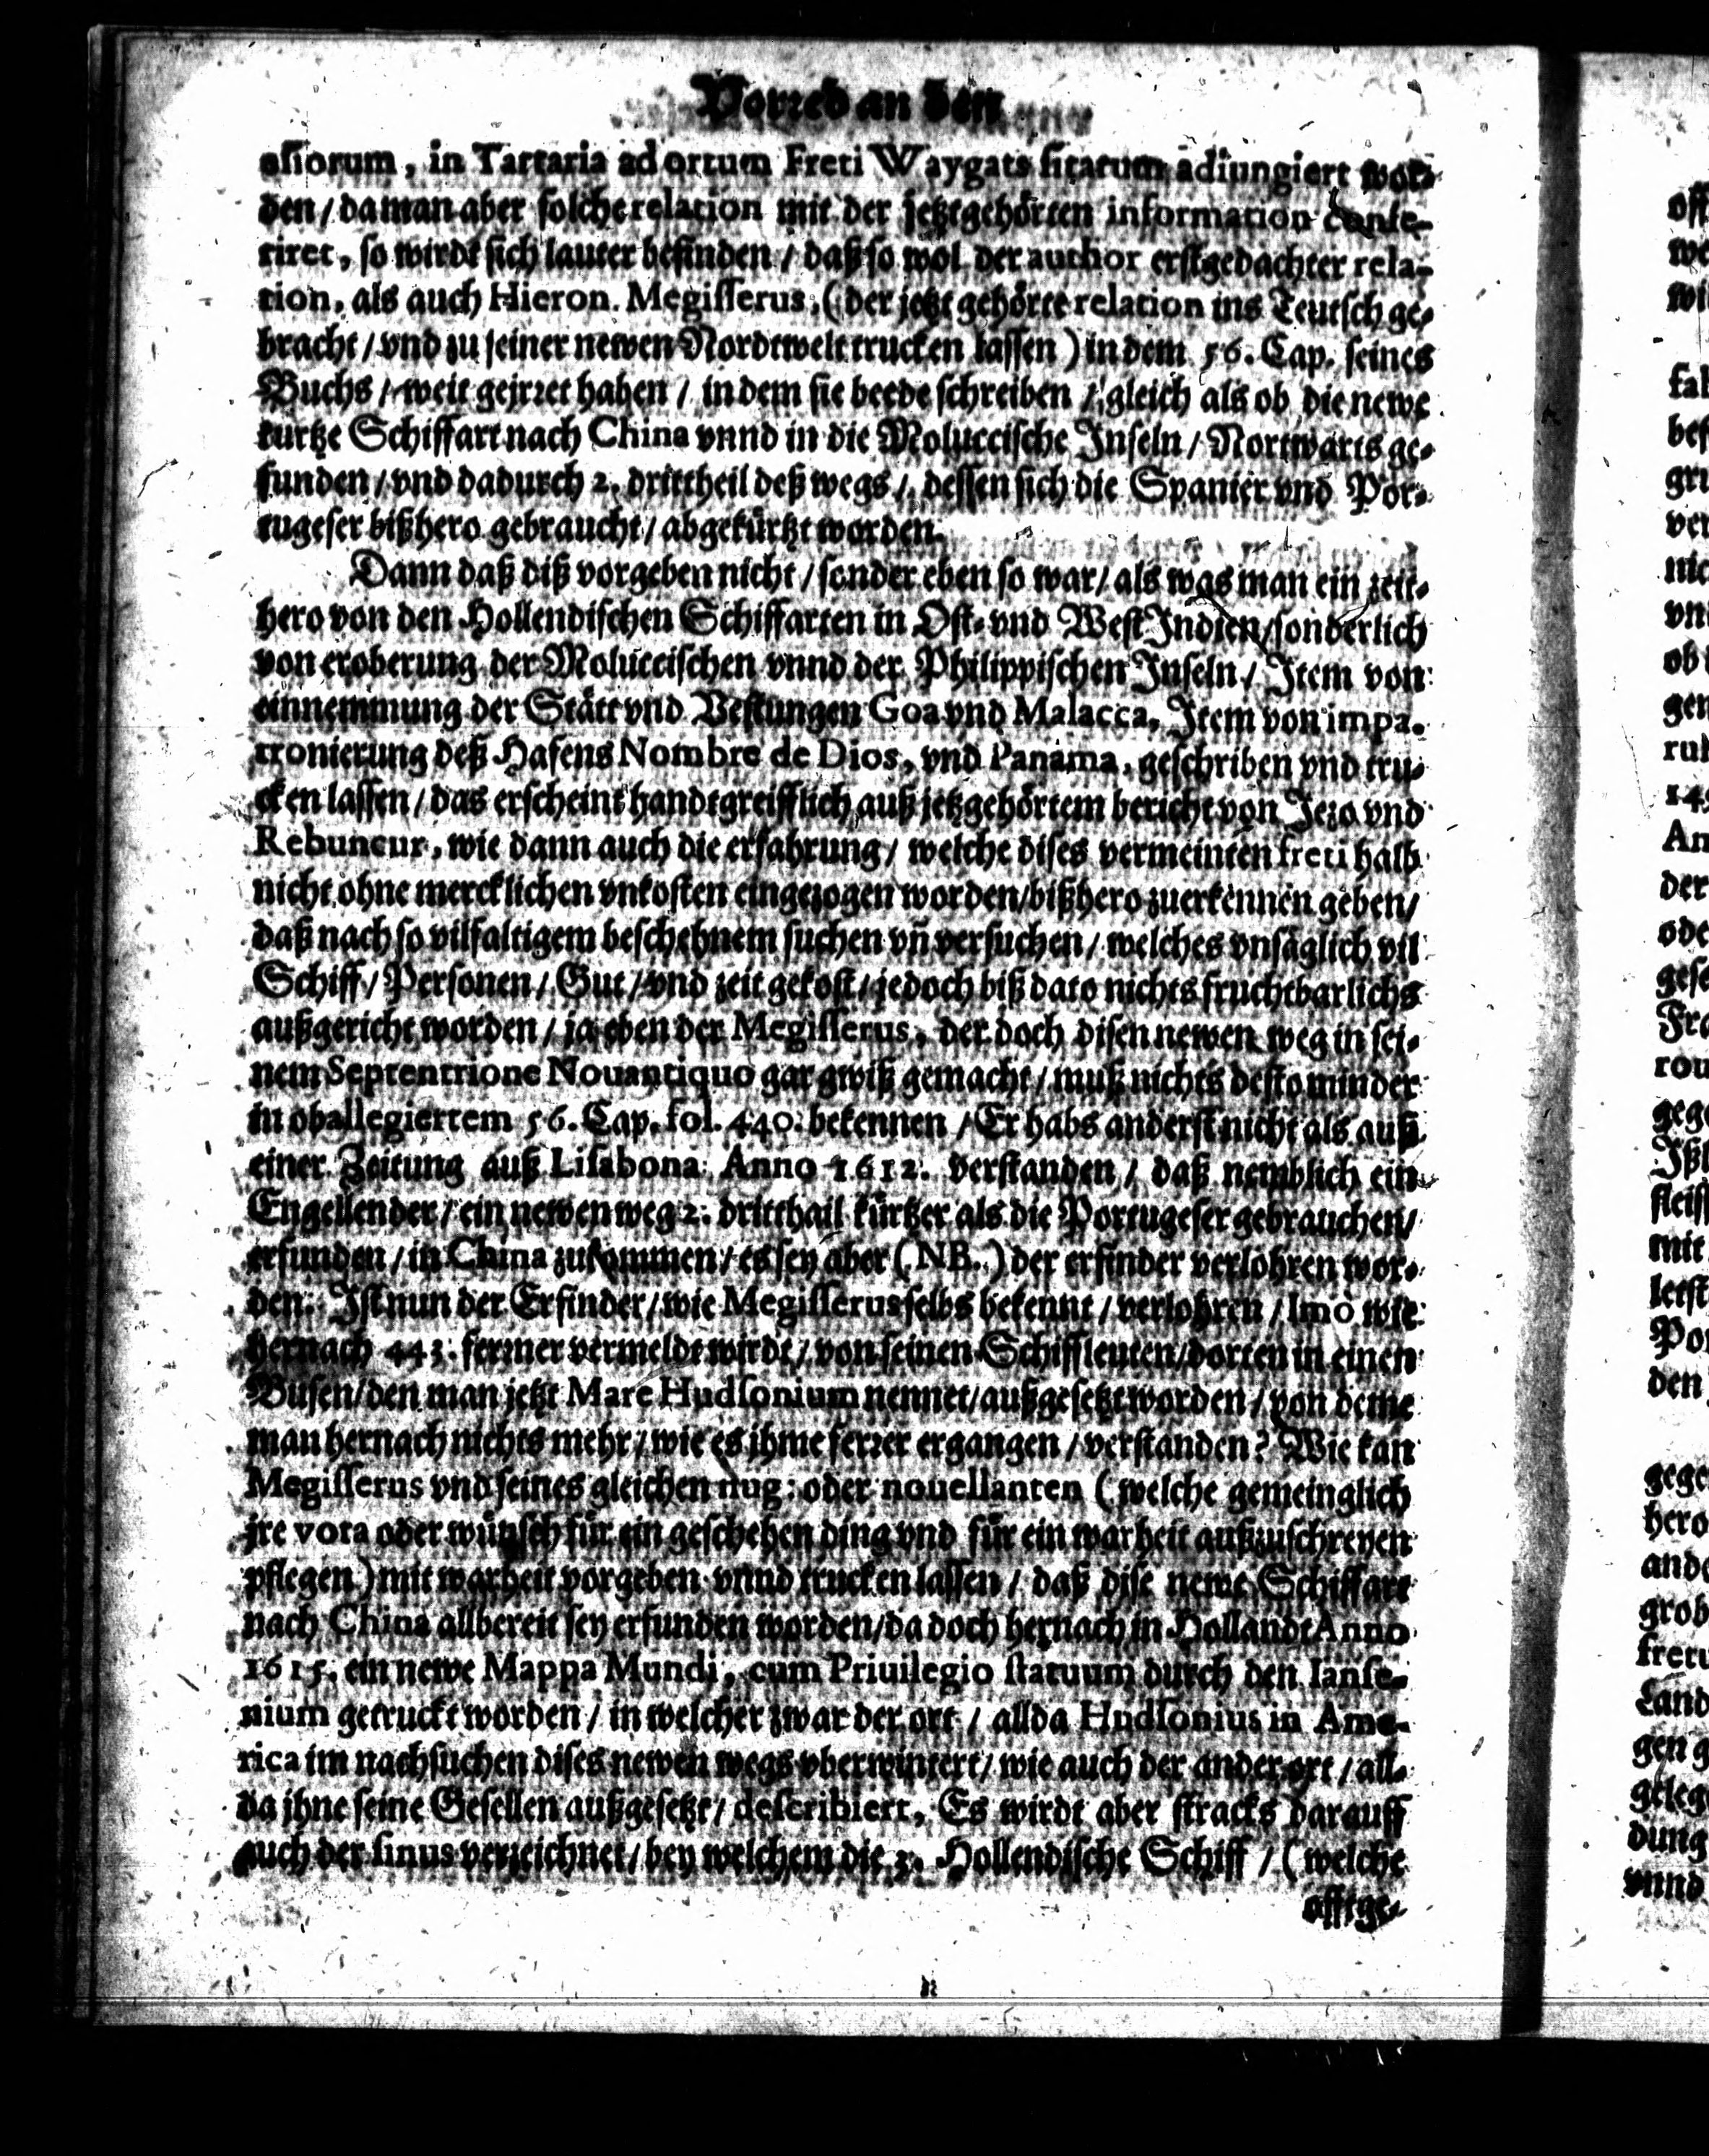 Vorred an den
osiorum, in Tartaria ad ortum Freti Waygats sitarum adiungiert wor-
den / da man aber solche relation mit der jetztgehörten information confe-
riret, so wirdt sich lauter befinden / daß so wol der author erstgedachter rela-
tion, als auch Hieron. Megisserus, (der jetzt gehörte relation ins Teutsch ge-
bracht / vnd zu seiner newen Nordtwelt trucken lassen) in dem 56. Cap. seines
Buchs / weit gejrret haben / in dem sie beede schreiben / gleich als ob die newe
kurtze Schiffart nach China vnnd in die Moluccische Inseln / Nortwarts ge-
funden / vnd dadurch 2. drittheil deß wegs / dessen sich die Spanier vnd Por-
tugeser bißhero gebraucht / abgekürtzt worden.
Dann daß diß vorgeben nicht / sonder eben so war / als was man ein zeit-
hero von den Hollendischen Schiffarten in Ost- vnd West Indien / sonderlich
von eroberung der Moluccischen vnnd der Philippischen Inseln / Item von
einnemmung der Stätt vnd Vestungen Goa vnd Malacca, Item von impa-
tronierung deß Hafens Nombre de Dios, vnd Panama, geschriben vnd tru-
cken lassen / das erscheint handtgreifflich auß jetzgehörtem bericht von Jezo vnd
Rebuncur, wie dann auch die erfahrung / welche dises vermeinten freti halb
nicht ohne mercklichen vnkosten eingezogen worden / bißhero zuerkennen geben /
daß nach so vilfaltigem beschehnem suchen vñ versuchen / welches vnsäglich vil
Schiff / Personen / Gut / vnd zeit gekost / jedoch biß dato nichts fruchtbarlichs
außgericht worden / ja eben der Megisserus, der doch disen newen weg in sei-
nem Septentrione Nouantiquo gar gwiß gemacht / muß nichts desto minder
in oballegiertem 56. Cap. fol. 440. bekennen / Er habs anderst nicht als auß
einer Zeitung auß Lisabona Anno 1612. verstanden / daß nemblich ein
Engellender / ein newen weg 2. dritthail kürtzer als die Portugeser gebrauchen /
erfunden / in China zukommen / es sey aber (NB.) der erfinder verlohren wor-
den. Ist nun der Erfinder / wie Megisserus selbs bekennt / verlohren / Imò wie
hernach 443. ferrner vermeldt wirdt / von seinen Schiffleuten / dorten in einen
Busen / den man jetzt Mare Hudsonium nennet / außgesetzt worden / von deme
man hernach nichts mehr / wie es jhme ferrer ergangen / verstanden? Wie kan
Megisserus vnd seines gleichen nug: oder nouellanten (welche gemeinglich
jre vota oder wünsch für ein geschehen ding vnd für ein warheit außzuschreyen
pflegen) mit warheit vorgeben vnnd trucken lassen / daß dise newe Schiffart
nach China allbereit sey erfunden worden / da doch hernach in Hollandt Anno
1615. ein newe Mappa Mundi, cum Priuilegio statuum durch den Ianse-
nium getruckt worden / in welcher zwar der ort / allda Hudsonius in Ame-
rica im nachsuchen dises newen wegs vberwintert / wie auch der ander ort / all-
da jhne seine Gesellen außgesetzt / describiert, Es wirdt aber stracks darauff
auch der sinus verzeichnet / bey welchem die 3. Hollendische Schiff / (welche
offtge-